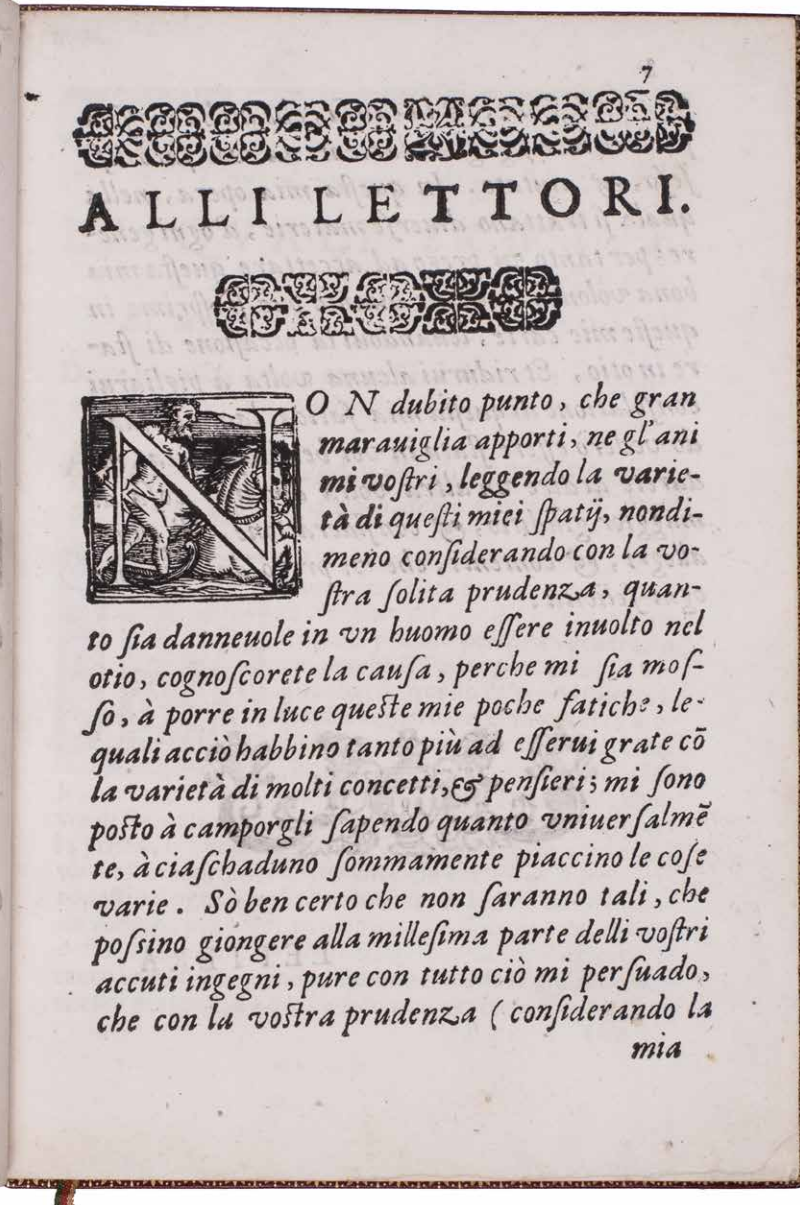 7
ALLI LETTORI.
NON dubito punto, che gran
marauiglia apporti, ne gl'ani
mi voſtri, leggendo la varie-
tà di queſti miei ſpatij, nondi-
meno conſiderando con la vo-
ſtra ſolita prudenza, quan-
to ſia danneuole in vn huomo eſſere inuolto nel
otio, cognoſcorete la cauſa, perche mi ſia moſ-
ſo, à porre in luce queſte mie poche fatiche, le-
quali acciò habbino tanto più ad eſſerui grate cō
la varietà di molti concetti, & penſieri; mi ſono
poſto à camporgli ſapendo quanto vniuerſalmē
te, à ciaſchaduno ſommamente piaccino le coſe
varie. Sò ben certo che non ſaranno tali, che
poſsino giongere alla milleſima parte delli voſtri
accuti ingegni, pure con tutto ciò mi perſuado,
che con la voſtra prudenza (conſiderando la
mia